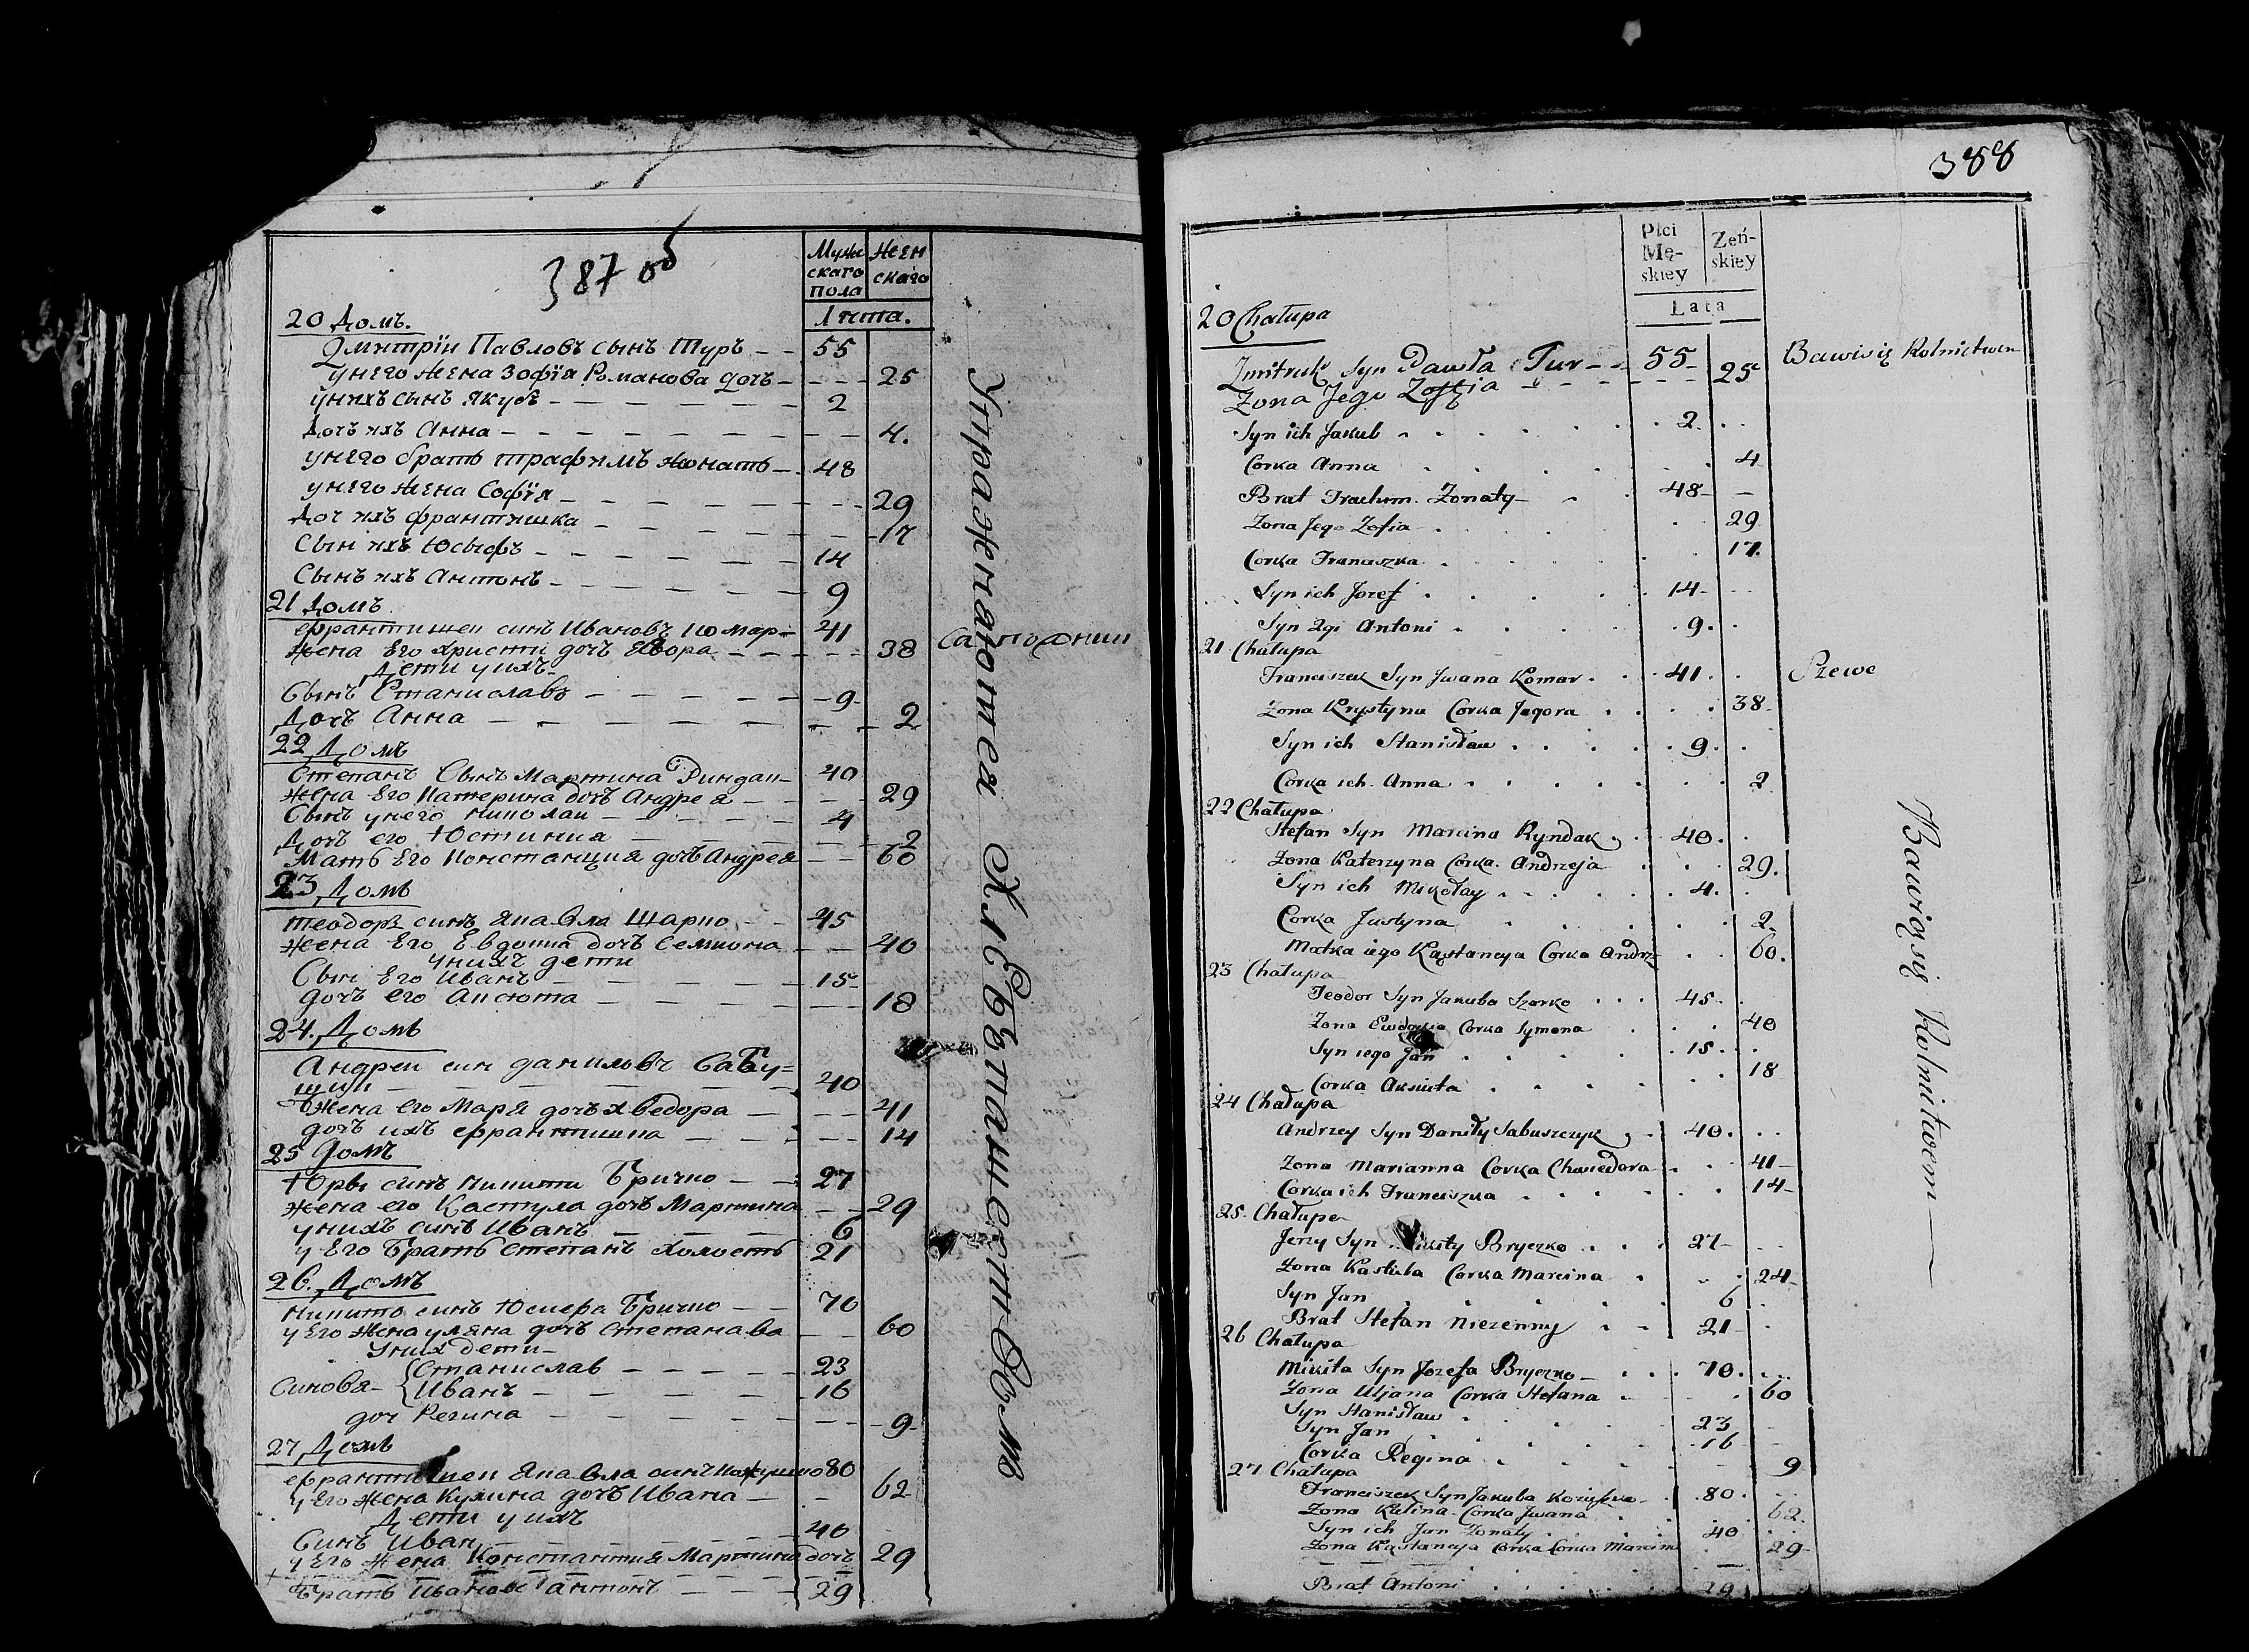 387 об
Мужескаго Пола
Женскаго
Лѣта.
20 Домъ.
Дмитрій Павловъ сынъ Туръ — 55
у него жена Зофія Романова дочь — 25
у нихъ сынъ Якубъ — 2
Дочь ихъ Анна — 4.
у него братъ Трафимъ жонатъ — 48
у него жена Софія — 29
Доч ихъ Франтишка — 17
Сын ихъ Юсыфъ — 14
Сынъ ихъ Антонъ — 9
21 Домъ
Франтишек синъ Ивановъ Комар — 41
Жена Его Христи дочъ Егора — 38
Дети у ихъ
Сынъ Станиславъ — 9
Дочъ Анна — 2
22 Домъ
Степанъ Сынъ Мартина Риндак — 40
Жена Его Катерина дочъ Андрея — 29
Сынъ у него Николаи — 4
Дочъ его Юстиния — 2
Мать Его Констанция дочъ Андрея — 60
23 Домъ
Теодоръ синъ Якавла Шарко — 45
Жена Его Евдокиа дочъ Семиона — 40
у нихъ дети
Сын Его Иванъ — 15
дочъ его Аксюта — 18
24. Домъ
Андреи син Данильвъ Сабу=
щик — 40
Жена его Маря дочъ Хведора — 41
дочъ ихъ Франтишка — 14
25 Домъ
Юры синъ Никити Бричко — 27
Жена его Кастула дочъ Мартина — 29
у нихъ синъ Иванъ — 6
у Его Братъ Степанъ холостъ 21
26. Домъ
Никита синъ Юсифа Бричко — 70
у Его Жена Уляна дочъ Степанава — 60
у них дети
Синовя { Станислав — 23
Иванъ — 16
доч Регина — 9
27 Домъ
Франтишек Якавла синъ Кожушко 80
у Его Жена Кулина дочъ Ивана — 62
Дети у ихъ
Синъ Иван — 40
у Его Жена Константия Мартина дочъ 29
Братъ Иванов Антонъ — 29
Упражняющея Хлебопашествомъ
Сапожник
388
Płci Mę-skiey
Zeń-skiey
Lata
20 Chałupa
Zmitruk Syn Pawła Tur — 55 Bawi się Rolnictwem
Zona Jego Zofia — 25
Syn ich Jakub . 2
Corka Anna . 4
Brat Trachim Zonaty — 48
Zona Jego Zofia . 29
Corka Franciszka . 17.
Syn ich Jozef . 14
Syn 2gi Antoni . 9
21 Chałupa
Franciszek Syn Jwana Komar . 41 Szewc
Zona Krystyna Corka Jegora . 38
Syn ich Stanisław . 9
Corka ich Anna . 2
22 Chałupa
Stefan Syn Marcina Ryndak . 40
Zona Katerzyna Corka Andrzeja . 29.
Syn ich Mikołay . 4
Corka Justyna . 2.
Matka iego Kąstancya Corka Andrz . 60.
23 Chałupa
Teodor Syn Jakuba Szarko . 45
Zona Ewdokia Corka Symona . 40
Syn iego Jan . 15
Corka Aksiuta . 18
24 Chałupa
Andrzey Syn Daniły Sabuszczyk . 40
Zona Marianna Corka Chwiedora . 41
Corka ich Franciszka . 14
25. Chałupa
Jerzy Syn Mikity Bryczko . 27
Zona Kastula Corka Marcina . 24
Syn Jan . 6
Brat Stefan niezenny . 21
26 Chałupa
Mikita Syn Jozefa Bryczko . 70
Zona Uljana Corka Stefana . 60
Syn Stanisław . 23
Syn Jan . 16
Corka Regina . 9
27 Chałupa
Franciszek Syn Jakuba Kozuszko . 80
Zona Kulina Corka Jwana . 62.
Syn ich Jan Zonaty . 40
Zona Kąstancya Corka Corka Marcina . 29
Brat Antoni . 29
Bawią się Rolnitwem